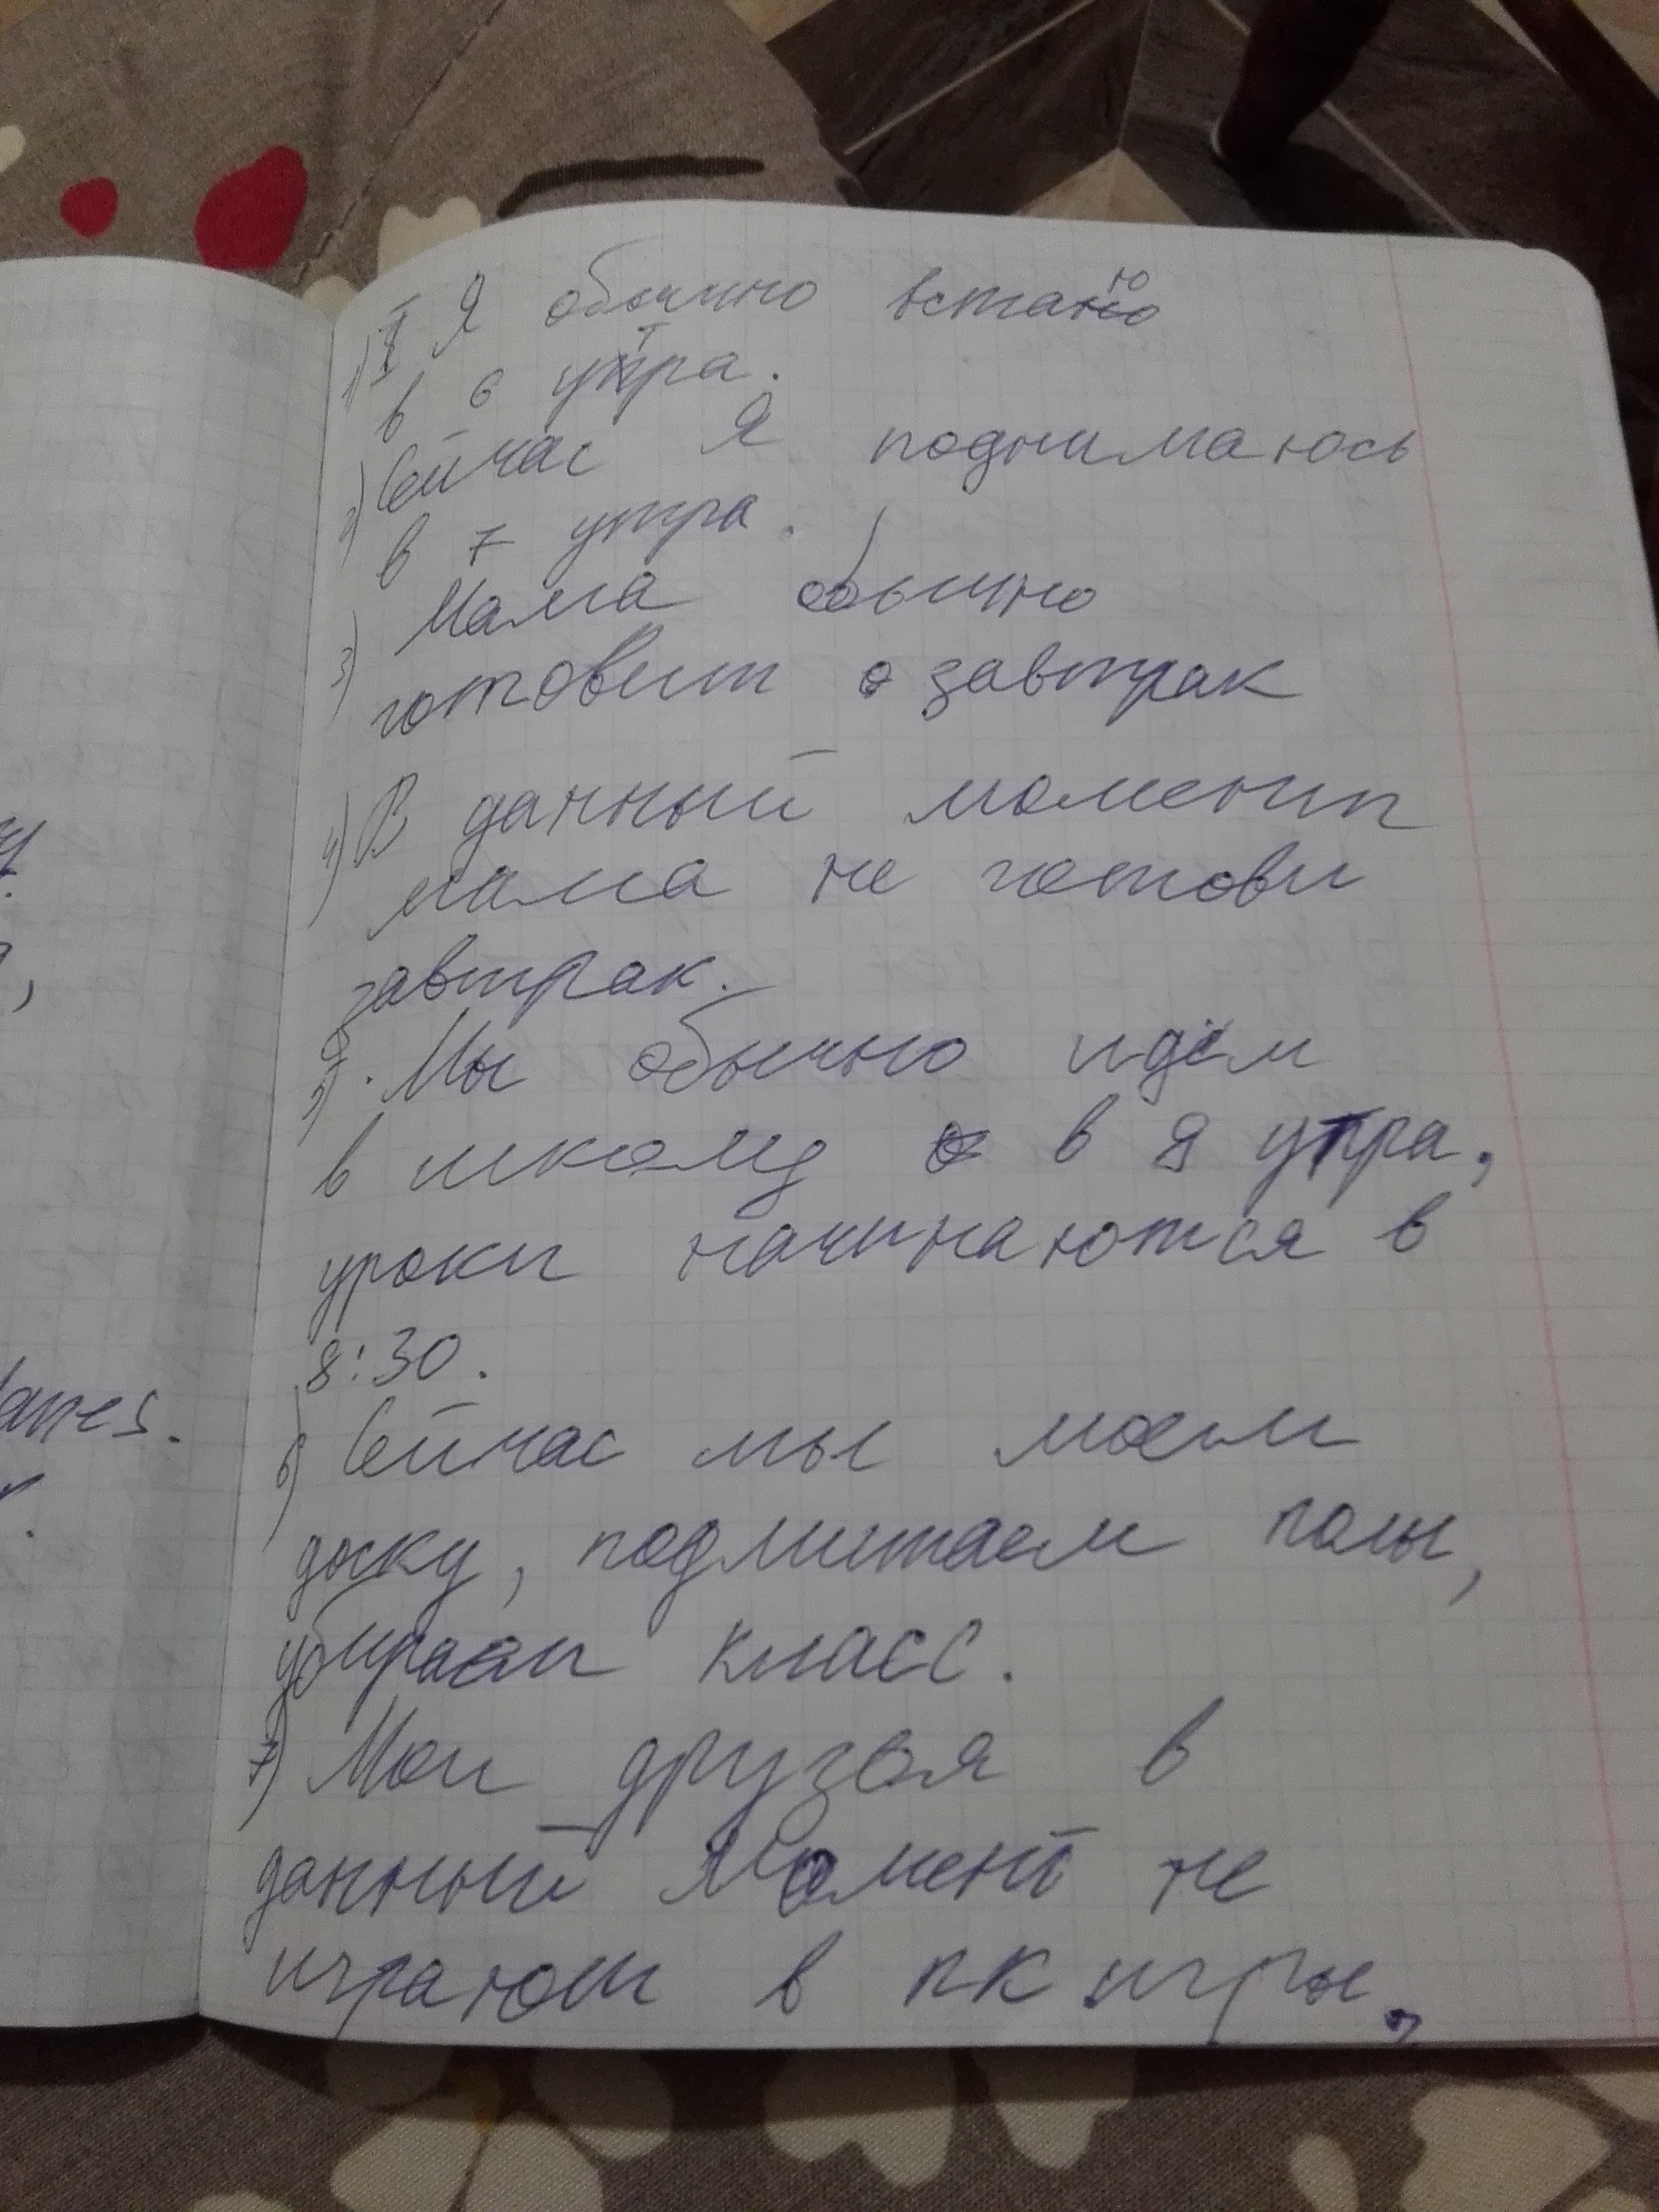 1) Я обычно встаю
в 6 утра.
2) Сейчас Я поднимаюсь
в 7 утра.
3) Мама обычно
готовит завтрак
4) В данный момент
мама не готови
завтрак.
5). Мы обычно идём
в школу в 8 утра,
уроки начинаются в
8:30.
6) Сейчас мы моем
доску, подмитаем полы,
убираем класс.
7) Мои друзья в
данный момент не
играют в пк игры,